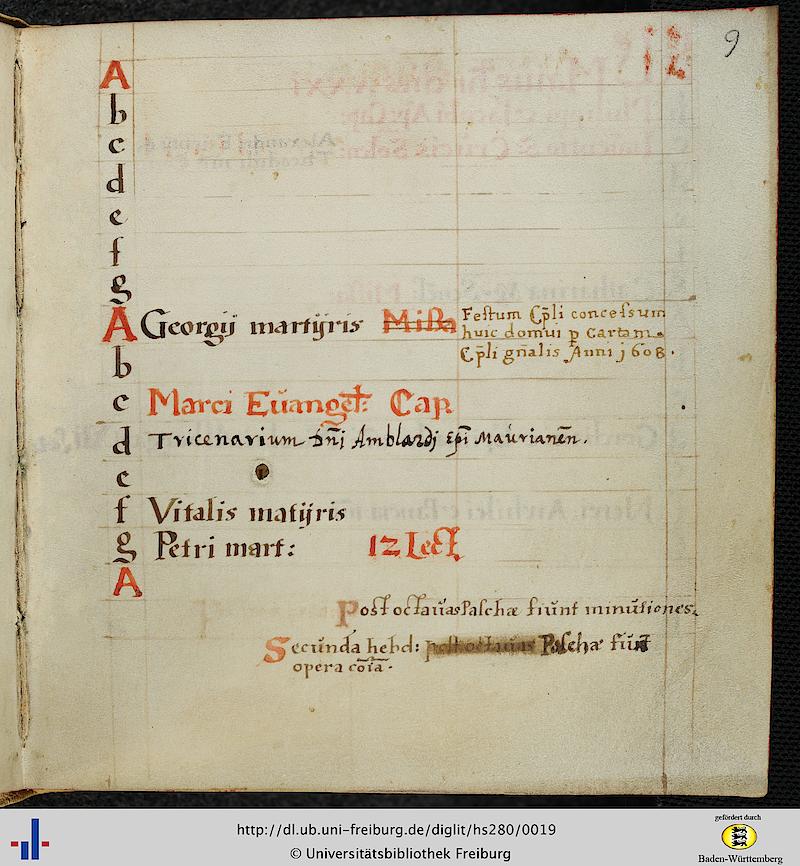 9
A
b
c
d
e
f
g
A Georgij martijris Missa Festum Cp̃li concessum
huic domui p Cartam
Cp̃li gñalis Anni 1608.
b
c Marci Euangel: Cap.
d Tricenarium Dñi Amblardj Ep̃i Maurianeñ.
e
f Vitalis matijris
g Petri mart: 12 Lect
A
Post octauas Paschæ fiunt minutiones.
Secunda hebd: post octauas Paschæ fiunt
opera cõia.
http://dl.ub.uni-freiburg.de/diglit/hs280/0019
© Universitätsbibliothek Freiburg
gefördert durch
Baden-Württemberg